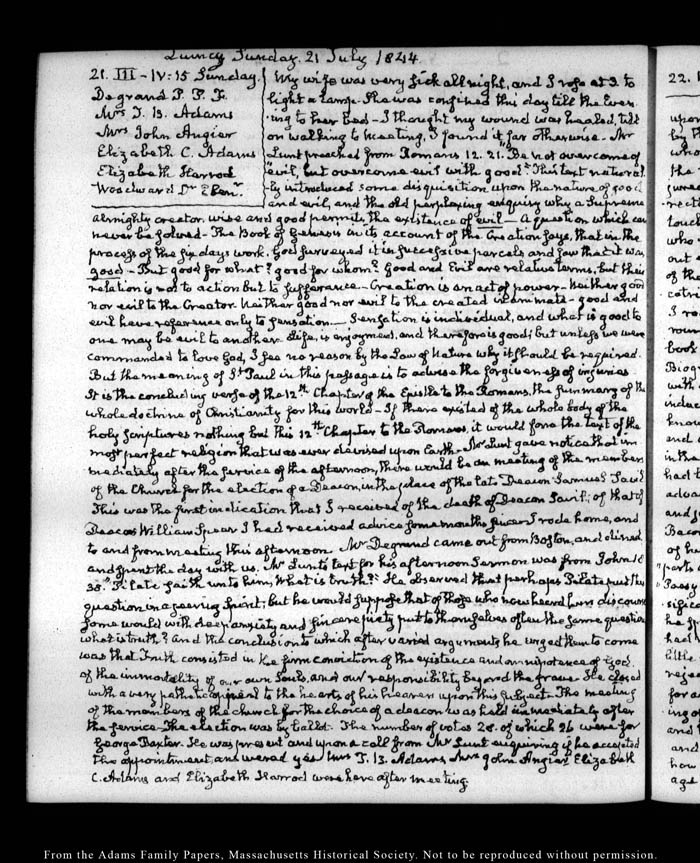 Quincy Sunday. 21 July 1844.
21. III - IV:15 Sunday.
Degrand P. P. F.
Mrs T. B. Adams
Mrs John Angier
Elizabeth C. Adams
Elizabeth Harrod
Woodward Dr Ebenr.
My wife was very sick all night, and I rose at 3. to
light a lamp. She was confined this day till the Even-
ing to her bed - I thought my wound was healed, till
on walking to Meeting, I found it far otherwise - Mr
Lunt preached from Romans 12. 21. "Be not overcome of
"evil, but overcome evil with good." This text natural-
ly introduced some disquisition upon the nature of good
and evil, and the old perplexing enquiry why a Supreme
almighty creator wise and good permits the existence of evil - A question which can
never be solved - The Book of Genesis in its account of the Creation says, that in the
process of the six days work, God surveyed it in successive parcels and saw that it was
good - But good for what? good for whom? Good and Evil are relative terms, but their
relation is not to action but to sufferance - Creation is an act of power - Neither good
nor evil to the Creator. Neither good nor evil to the created inanimate - good and
evil have reference only to sensation - Sensation is individual, and what is good to
one may be evil to another. Life, is enjoyment, and therefore is good; but unless we were
commanded to love God, I see no reason by the Law of Nature why it should be required.
But the meaning of St Paul in this passage is to advise the forgiveness of injuries
It is the concluding verse of the 12th Chapter of the Epistle to the Romans, the summary of the
whole doctrine of Christianity for this world - If there existed of the whole body of the
holy Scriptures nothing but this 12th Chapter to the Romans, it would form the text of the
most perfect religion that was ever devised upon Earth - Mr Lunt gave notice that im
mediately after the service of the afternoon, there would be a meeting of the members
of the Church for the election of a Deacon, in the place of the late Deacon Samuel Savil
This was the first indication that I received of the death of Deacon Savil; of that of
Deacon William Spear I had received advice some months since. I rode home, and
to and from meeting this afternoon Mr Degrand came out from Boston, and dined
and spent the day with us. Mr Lunt's text for his afternoon Sermon was from John 18
38. "Pilate saith unto him, What is truth?" He observed that perhaps Pilate put this
question in a jeering spirit; but he would suppose that of those who now heard him discourse
some would with deep anxiety and sincere piety put to themselves often the same question
what is truth? And the conclusion to which after varied arguments he urged them to come
was that Truth consisted in the firm conviction of the existence and omnipotence of God
of the immortality of our own Souls, and our responsibility beyond the grave. He closed
with a very pathetic appeal to the hearts of his hearers upon this subject. The meeting
of the members of the church for the choice of a deacon was held immediately after
the service - The election was by ballot. The number of votes 28. of which 26 were for
George Baxter. He was present and upon a call from Mr Lunt enquiring if he accepted
the appointment answered yes Mrs T. B. Adams, Mrs John Angier Elizabeth
C. Adams and Elizabeth Harrod were here after meeting.
22.
upon
by
who
the
who
out
of the
I
book
with
and
in the
had
and
of
Poesy
he
had
little
for
ing of
and
and
how
age
From the Adams Family Papers, Massachusetts Historical Society. Not to be reproduced without permission.